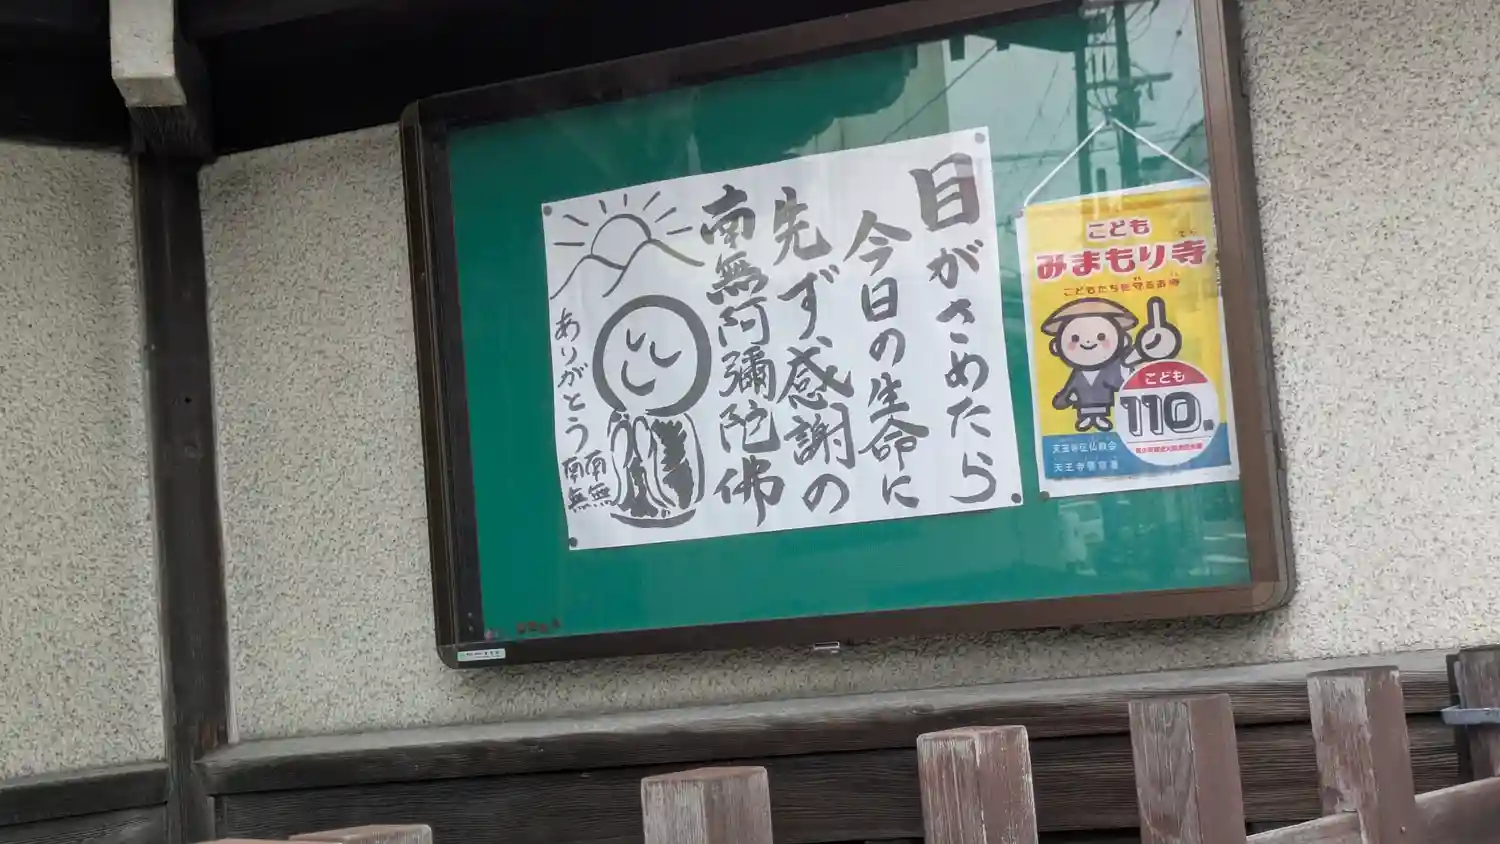 目がさめたら
今日の生命に
先ず感謝の
南無阿彌陀佛
ありがとう
南無
南無
こども
みまもり寺
こどもたちを守るお寺
こども
110番
天王寺区仏教会
天王寺警察署